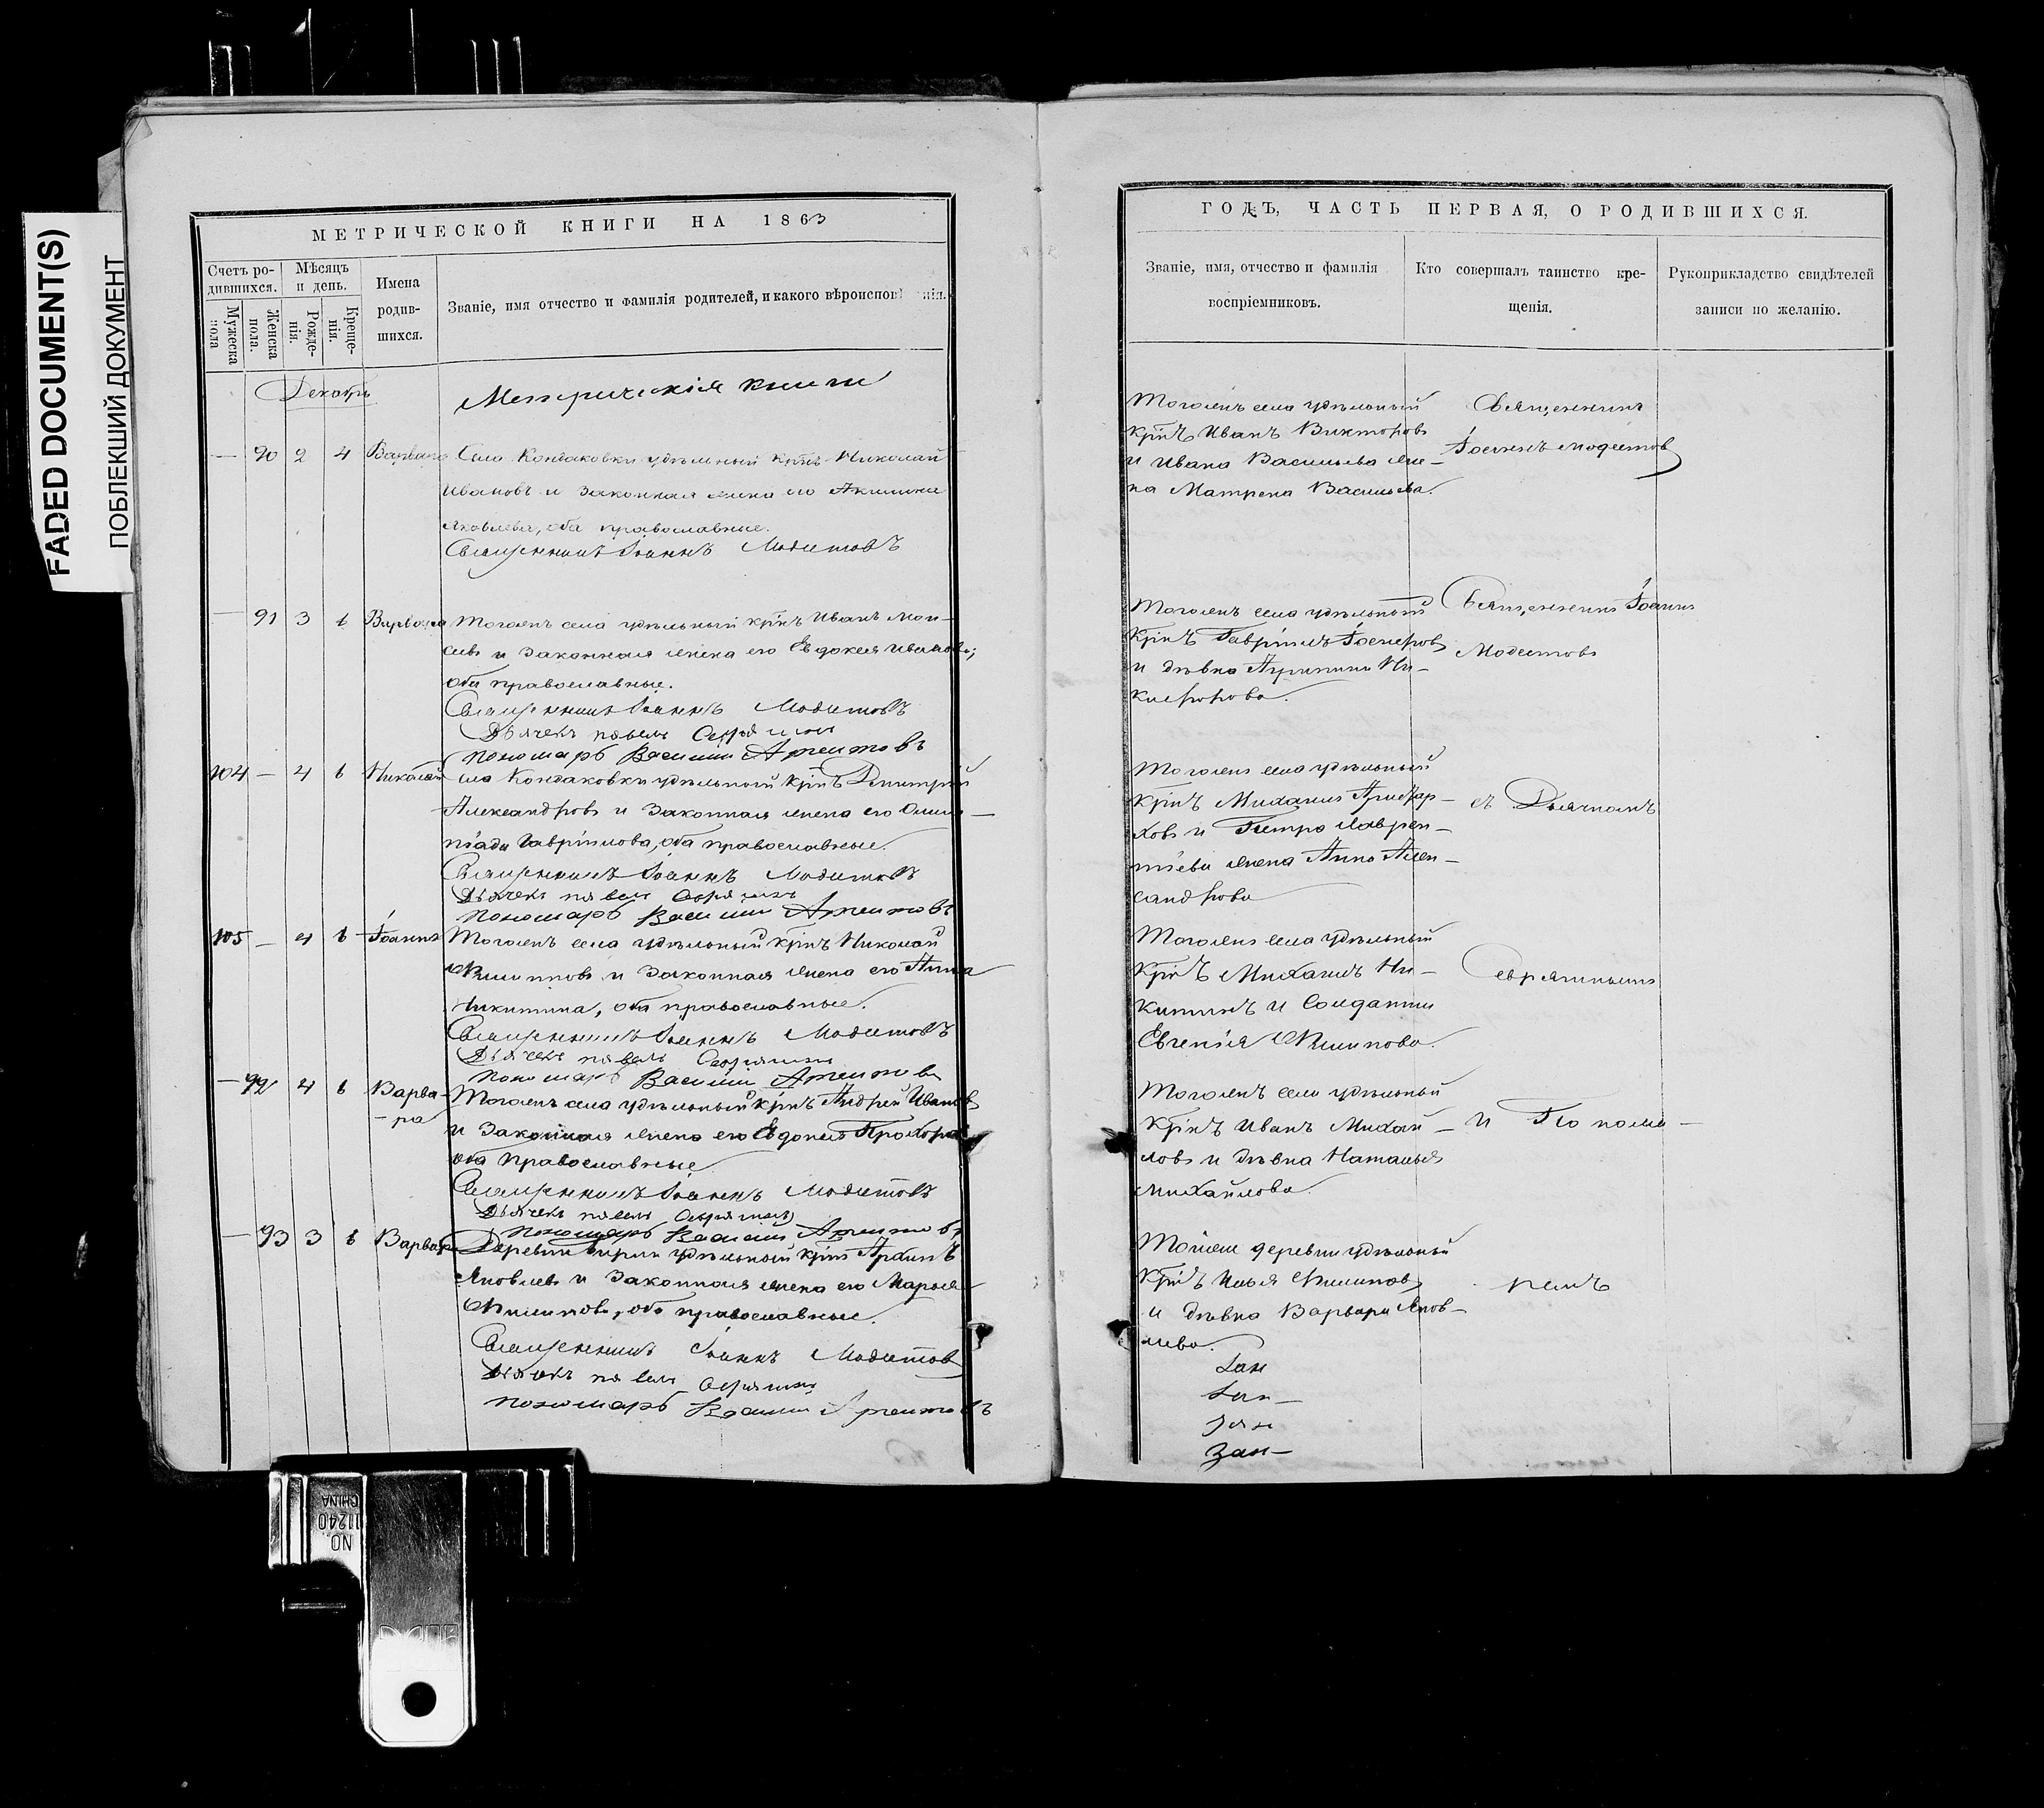 FADED DOCUMENT(S)
ПОБЛЕКШИЙ ДОКУМЕНТ
МЕТРИЧЕСКОЙ КНИГИ НА 1863
Счетъ ро-
дившихся.
Мужеска
пола
Женска
пола.
Мѣсяцъ
и день.
Рожде-
нія.
Креще-
нія.
Имена
родив-
шихся.
Званіе, имя отчество и фамилія родителей, и какого вѣроиспов нія.
Декабрь
Метрическія книги
— 90 2 4 Варвара Села Кондаковки удѣльный крнъ Николай
Ивановъ и законная жена его Акилина
Яковлева, оба православные.
Священникъ Іоаннъ Модестовъ
— 91 3 6 Варвара Тогожъ села удѣльный крнъ Иванъ Мои-
сеевъ и законная жена его Евдокея Иванова;
оба православные.
Священникъ Іоаннъ Модестовъ
Дьячекъ Павелъ
Пономарь Василий
104 — 4 6 Николай Села Кондаковки удѣльный крнъ Димитрий
Александровъ и законная жена его Олим-
піада Гавріилова, оба православные.
Священникъ Іоаннъ Модестовъ
Дьячекъ Павелъ
Пономарь Василий
105 — 4 6 Іоаннъ Тогожъ села удѣльный крнъ Николай
Филиповъ и законная жена его Анна
Никитина, оба православные.
Священникъ Іоаннъ Модестовъ
Дьячекъ Павелъ
Пономарь Василий
— 92 4 6 Варва-
-ра
Тогожъ села удѣльный крнъ Андрей Ивановъ
и законная жена его Евдокея Прохорова
оба православные
Священникъ Іоаннъ Модестовъ
Дьячекъ Павелъ
Пономарь Василий
— 93 3 6 Варвара Деревни удѣльный крнъ
Яковлевъ и законная жена его Марья
Филипова, оба православные.
Священникъ Іоаннъ Модестовъ
Дьячекъ Павелъ
Пономарь Василий
ГОДЪ, ЧАСТЬ ПЕРВАЯ, О РОДИВШИХСЯ.
Званіе, имя, отчество и фамилія
воспріемниковъ.
Кто совершалъ таинство кре-
щенія.
Рукоприкладство свидѣтелей
записи по желанію.
Тогожъ села удѣльный
крнъ Иванъ Викторовъ
и Ивана Васильева же-
на Матрена Васильева.
Священникъ
Іоаннъ Модестовъ
Тогожъ села удѣльный
крнъ Гавріилъ
и дѣвка Агрипина Ни-
кифорова.
Священникъ Іоаннъ
Модестовъ
Тогожъ села удѣльный
крнъ Михаилъ Аристар-
ховъ и Петра Лаврен-
тіева жена Анна Алек-
сандрова
съ Дьячкомъ
Тогожъ села удѣльный
крнъ Михаилъ Ни-
китинъ и солдатка
Евгенія Филипова.
Тогожъ села удѣльный
крнъ Иванъ Михай-
ловъ и дѣвка Наталья
Михайлова.
и Понома-
Тойже деревни удѣльный
крнъ Илья Филиповъ
и дѣвка Варвара Яков-
лева.
ремъ